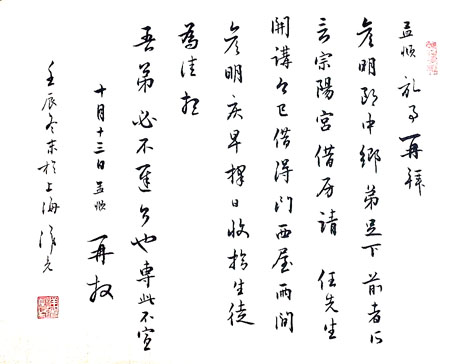 孟頫 記事再拜
彥明郎中鄉弟足下前者所
言宗陽宮借房請 任先生
開講今已借得門西屋兩間
彥明疾早擇日收拾生徒
為佳想
吾弟必不遲了也專此不宣
十月十三日孟頫 再拜
壬辰冬末於上海